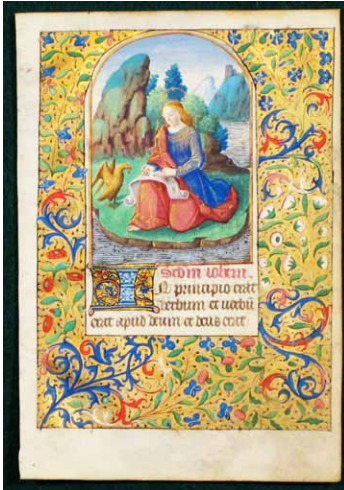 Scdm iohem.
IN principio erat
verbum et verbū
erat apud deum et deus erat